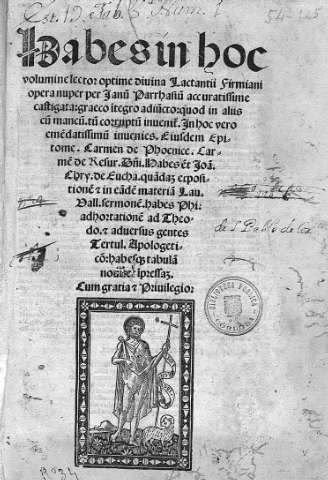 Est. 19. Tab. 6. Num. 1
54-125
Habes in hoc
volumine lector optime divina Lactantii Firmiani
opera nuper per Janũ Parrhasiũ accuratissime
castigata: graeco ītegro adiũcto: quod in aliis
cũ mancũ. tũ corruptũ inveniť. In hoc vero
emẽdatissimũ invenies. Eiusdem Epi
tome. Carmen de Phoenice. Car
mẽ de Resur. Dñi. Habes ẽt Joã.
Chry. de Eucha. quãdaȝ expositi
tionẽ ⁊ in eãdẽ materiã Lau.
Vall. sermonẽ. habes Phi:
adhortationẽ ad Theo
do. ⁊ adversus gentes
Tertul. Apologeti
cõ: habesqȝ tabulã
īpressaȝ.
Cum gratia ⁊ Privilegio:
de S. Pablo de
BIBLIOTECA PUBLICA
CORDOBA